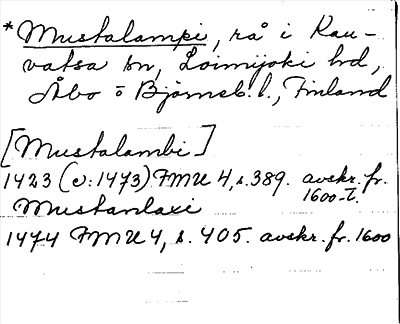 * Mustalampi, rå i Kau-
vatsa sn, Loimijoki hd,
Åbo o Björneb. l., Finland
[Mustalambi]
1423 (v: 1473) FMU 4, s. 389. avskr. fr.
1600-t.
Mustanlaxi
1474 FMU 4, s. 405. avskr. fr. 1600